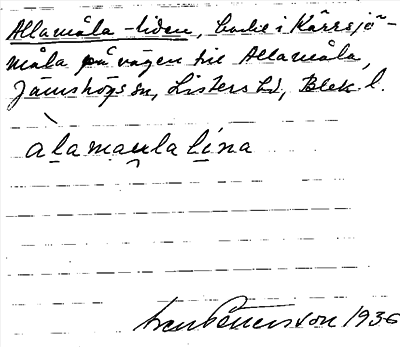 Allamåla-liden, backe i Kärrsjö-
måla på vägen till Allamåla,
Jämshögs sn, Listers hd, Blek. l.
alamaulalína
Pettersson 1936